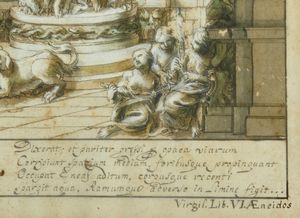 Dixerat; et pariter gressi p opaca viarum
Corripiunt spatium medium, foribusque propinquant
Occupat Eneas aditum, corpusque recenti
spargit aqua, Ramumque adverso in limine figit...
Virgil. Lib. VI. Æneidos